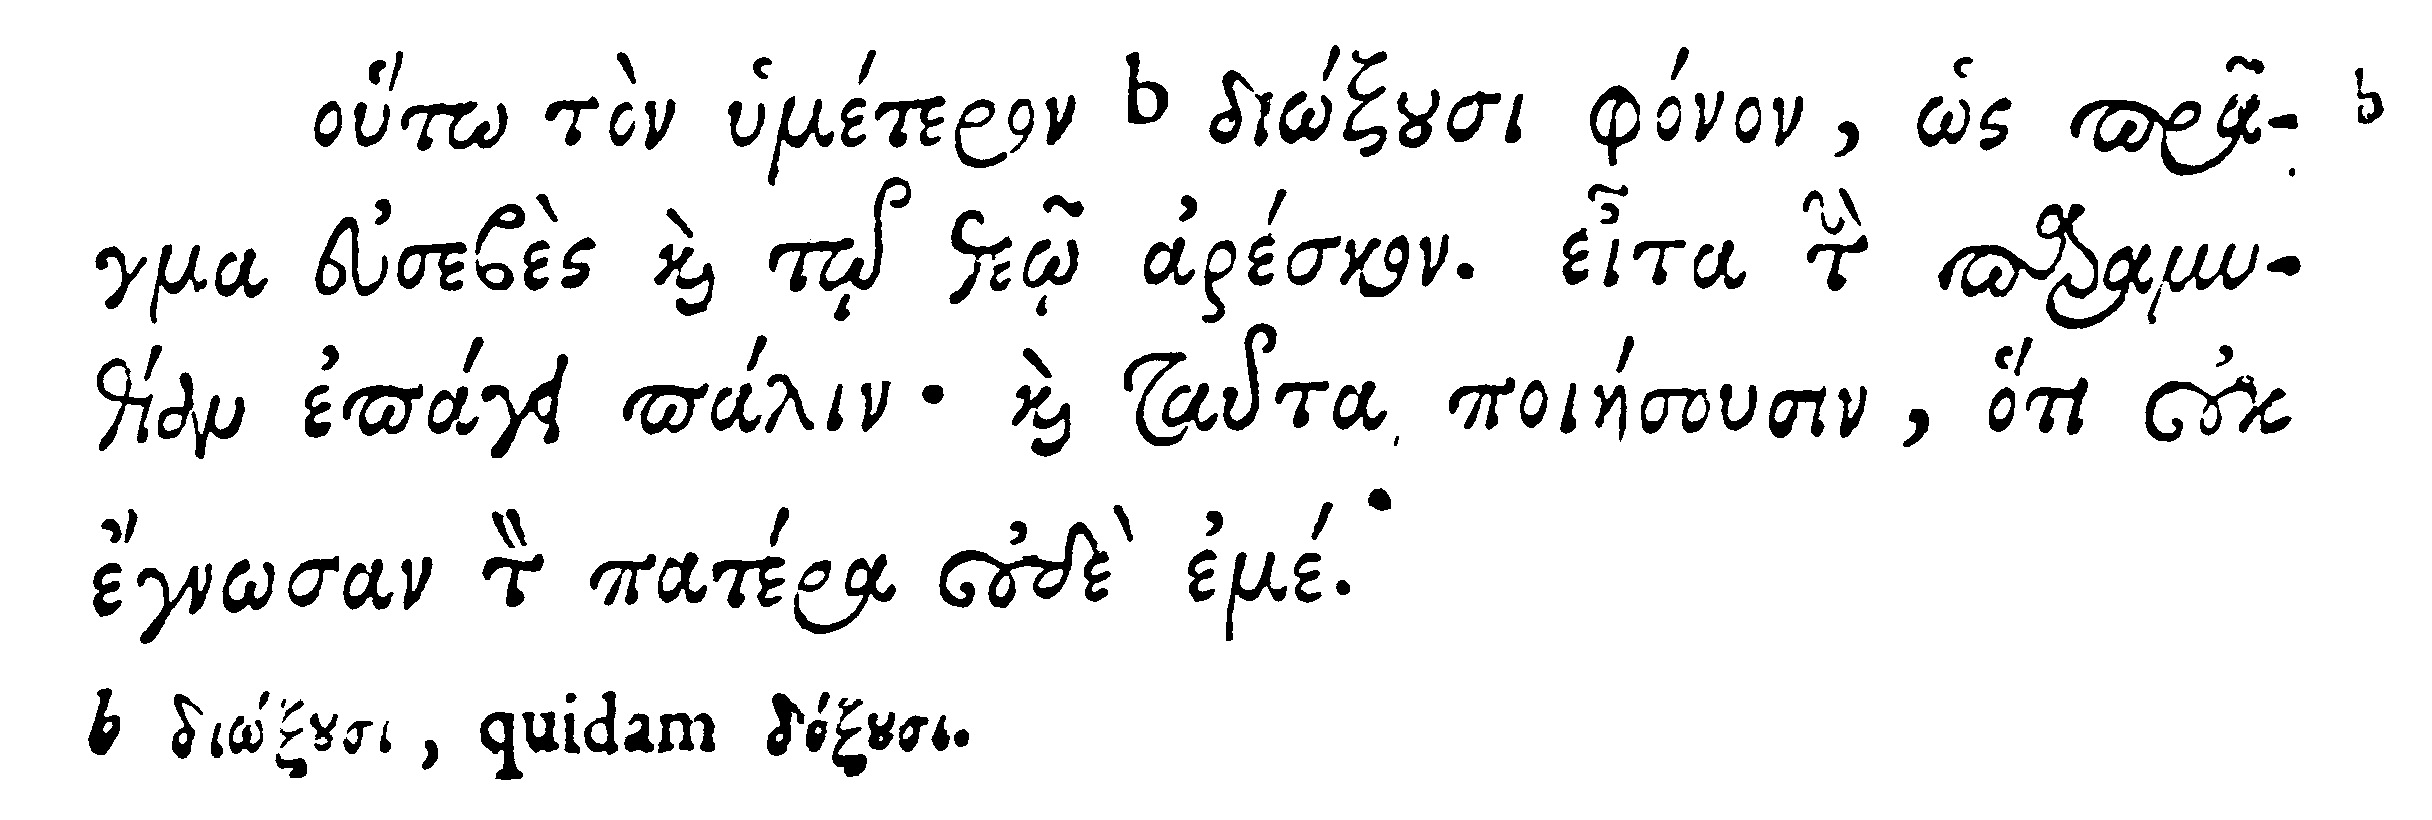 οὕτω τὸν ὑμέτερον b διώξουσι φόνον, ὡς πρᾶ- b
γμα εὐσεβὲς καὶ τῷ θεῷ ἀρέσκον. εἶτα τὴν παραμυ-
θίαν ἐπάγει πάλιν· καὶ ταῦτα ποιήσουσιν, ὅτι οὐκ
ἔγνωσαν τὸν πατέρα οὐδὲ ἐμέ.
b διώξουσι, quidam δόξουσι.